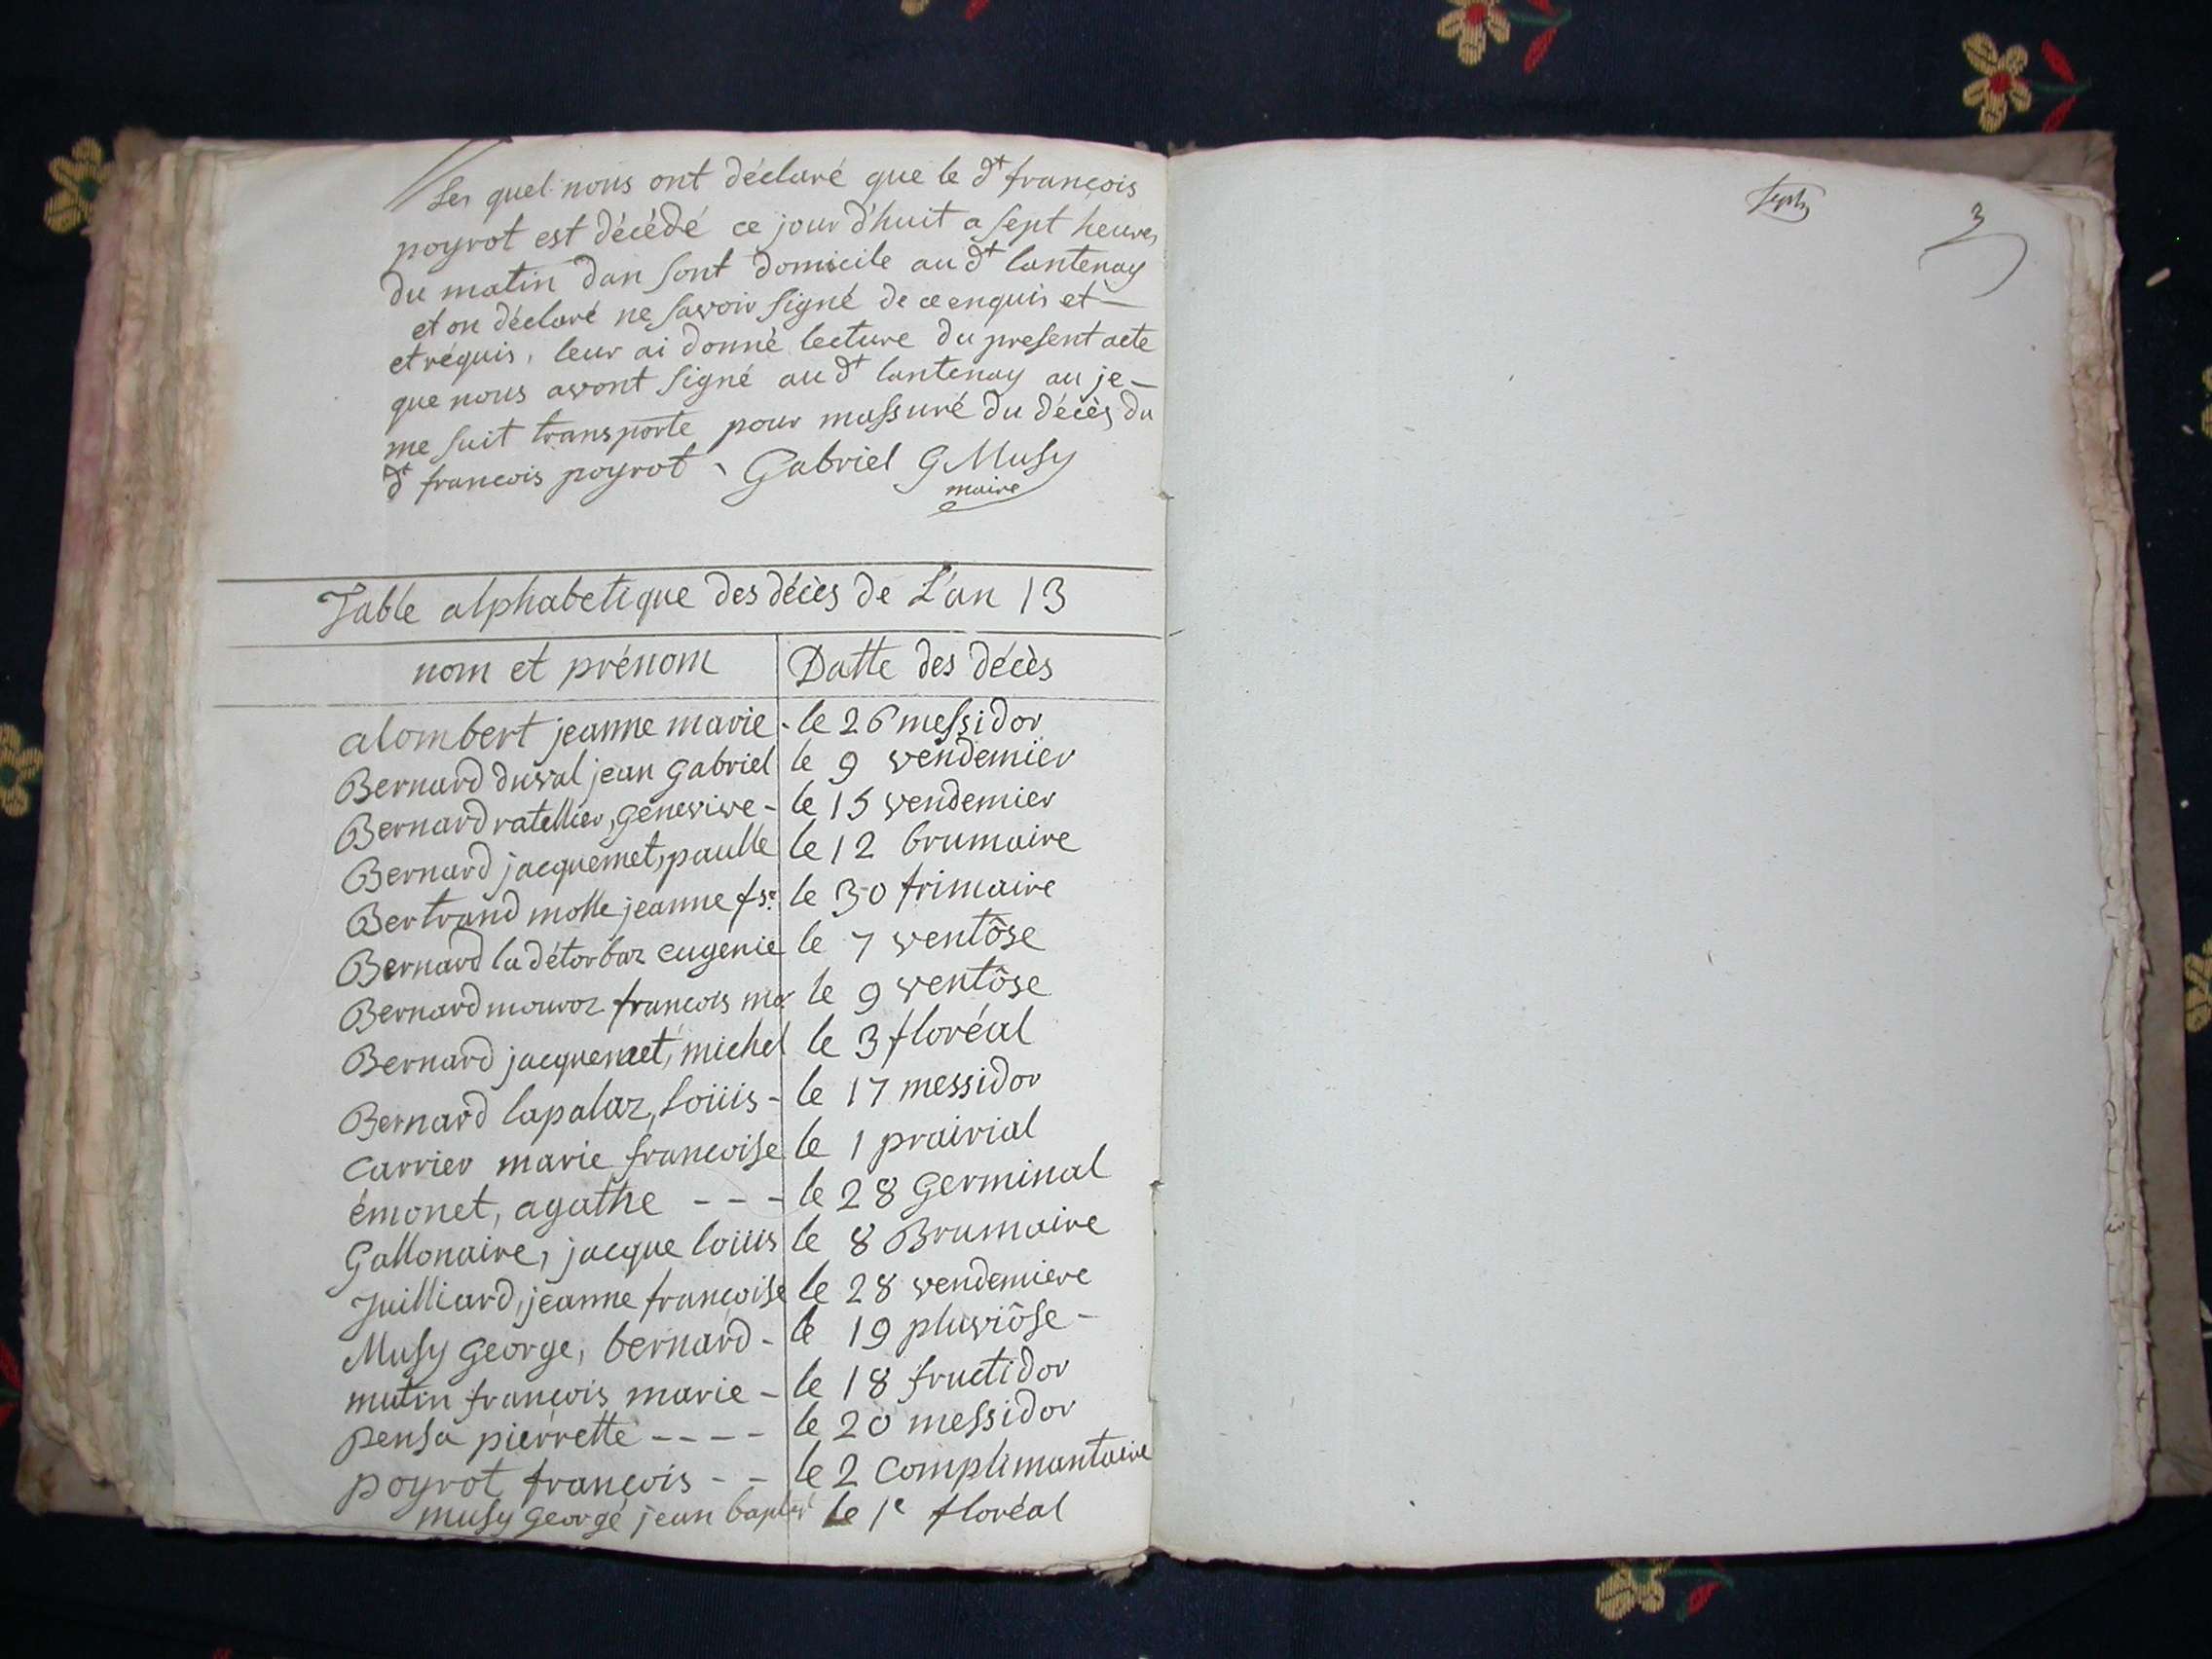 Les quel nous ont déclaré que le dt françois
poyrot est décédé ce jour d'huit a sept heures
du matin dan sont domicile au dt lantenay
et on déclaré ne savoir signé de ce enquis et
et réquis, leur ai donné lecture du present acte
que nous avont signé au dt lantenay au je
me suit transporte pour massuré du décès du
dt francois poyrot Gabriel G Musy
maire
Table alphabetique des décès de L'an 13
nom et prénom Datte des décès
alombert jeanne marie - le 26 messidor
Bernard duval jean Gabriel le 9 vendemier
Bernard ratellier, Genevive - le 15 vendemier
Bernard jacquemet, paulle le 12 brumaire
Bertrand molle jeanne fse le 30 frimaire
Bernard la détorbaz eugenie le 7 ventôse
Bernard mouroz francois mie le 9 ventôse
Bernard jacquemet, michel le 3 floréal
Bernard lapalaz, Loüis - le 17 messidor
Carrier marie francoise le 1 prairial
émonet, agathe - - - le 28 Germinal
Gallonaire, jacque loüis le 8 Brumaire
Juilliard, jeanne françoise le 28 vendemiere
Musy George, bernard - le 19 pluviôse -
mutin francois marie - le 18 fructidor
pensa pierrette - - - - le 20 messidor
poyrot françois - - le 2 complimantaire
musy George jean le 1e floréal
3